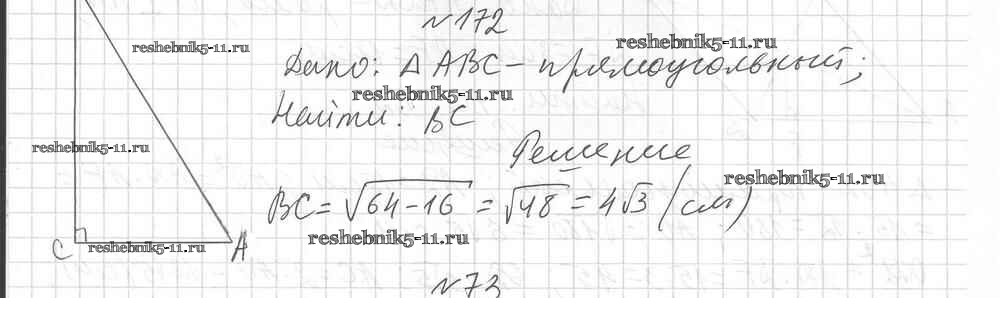 №172
reshebnik5-11.ru
reshebnik5-11.ru
Дано: Δ ABC - прямоугольный;
reshebnik5-11.ru
Найти: BC
reshebnik5-11.ru
Решение
reshebnik5-11.ru
BC = √64-16 = √48 = 4√3 (см)
reshebnik5-11.ru
C
reshebnik5-11.ru
A
№73